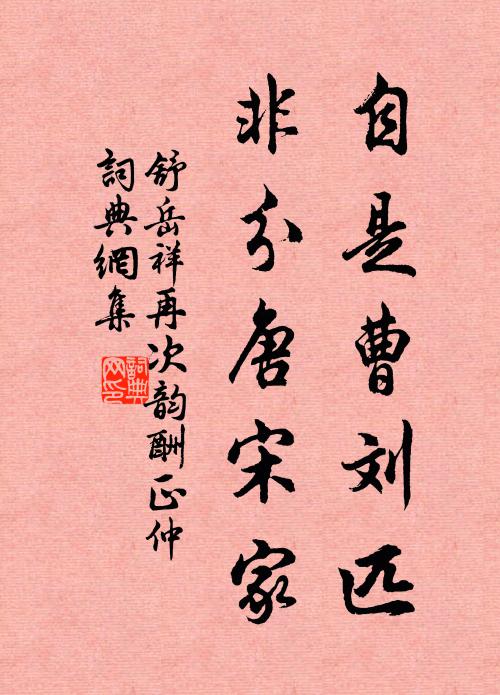 自是曹刘匹
非分唐宋家
舒岳祥再次韵酬正仲
詞典網集
詞典网印